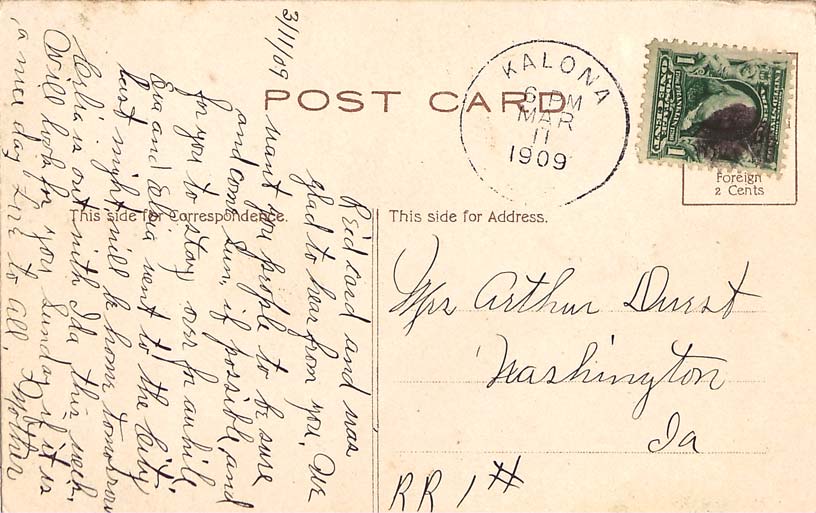 POST CARD
KALONA
6 PM
MAR
11
1909
Foreign
2 Cents
This side for Correspondence.
This side for Address.
3/11/09
Reid card and was
glad to hear from you. We
want you people to be sure
and come Sun, if possible, and
for you to stay over for awhile
Eva and went to the City
last night will be home tomorrow
is out with Ida this week.
Will look for you Sunday if it is
a nice day. Love to all. Mother
Mrs Arthur Durst
Washington
Ia
RR 1 #